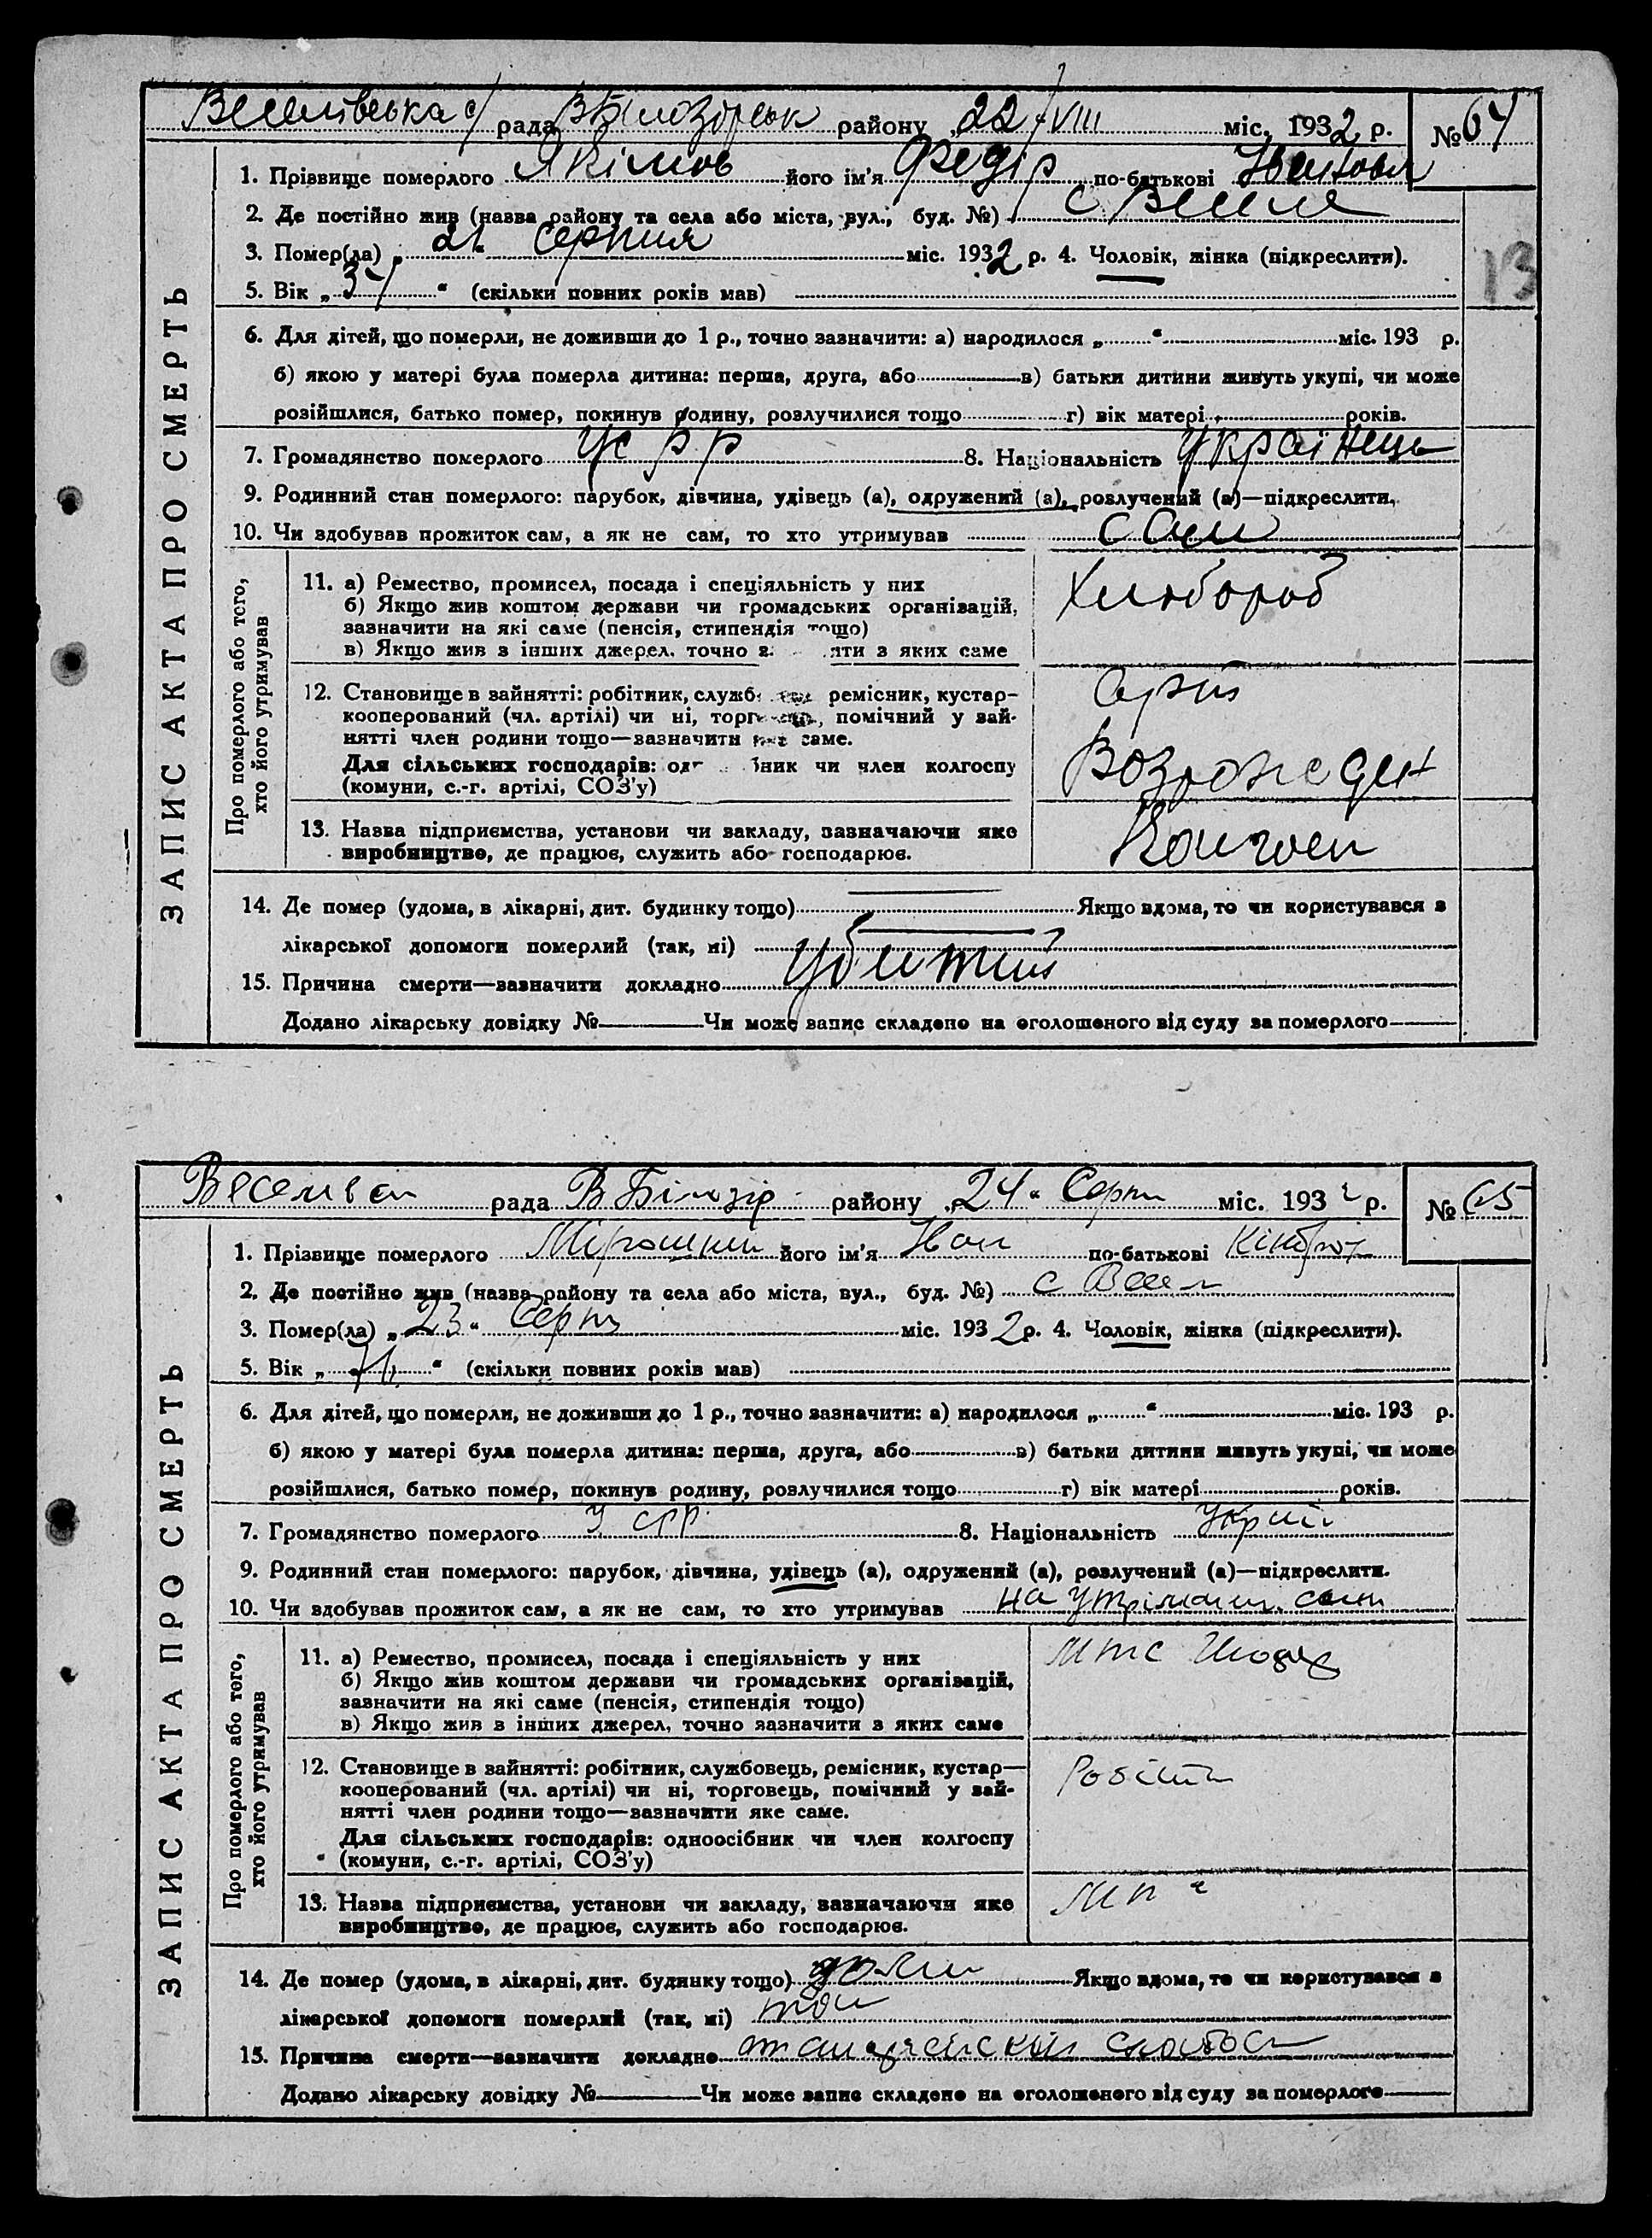 Веселівська с/ рада В Білозірськ району „22“ VIII міс. 1932 р. № 64
1. Прізвище померлого Якімов його ім'я Федір по-батькові
2. Де постійно жив (назва району та села або міста, вул., буд. №) с Веселе
3. Помер(ла) „21“ Серпня міс. 1932 р. 4. Чоловік, жінка (підкреслити).
5. Вік „ “ (скільки повних років мав)
13
6. Для дітей, що померли, не доживши до 1 р., точно зазначити: а) народилося „ “ міс. 193 р.
б) якою у матері була померла дитина: перша, друга, або в) батьки дитини живуть укупі, чи може
розійшлися, батько помер, покинув родину, розлучилися тощо г) вік матері років.
7. Громадянство померлого УСРР 8. Національність Українець
9. Родинний стан померлого: парубок, дівчина, удівець (а), одружений (а), розлучений (а)—підкреслити.
10. Чи здобував прожиток сам, а як не сам, то хто утримував сам
ЗАПИС АКТА ПРО СМЕРТЬ
Про померлого або того,
хто його утримував
11. а) Ремество, промисел, посада і спеціяльність у них
б) Якщо жив коштом держави чи громадських організацій,
зазначити на які саме (пенсія, стипендія тощо)
в) Якщо жив з інших джерел, точно з яти з яких саме
Хлібороб
12. Становище в зайнятті: робітник, служб ремісник, кустар-
кооперований (чл. артілі) чи ні, торг , помічний у зай-
нятті член родини тощо—зазначити яке саме.
Для сільських господарів: од бник чи член колгоспу
(комуни, с.-г. артілі, СОЗ'у)
Возрожден
13. Назва підприємства, установи чи закладу, зазначаючи яке
виробництво, де працює, служить або господарює.
Колгосп
14. Де помер (удома, в лікарні, дит. будинку тощо) Якщо вдома, то чи користувався з
лікарської допомоги померлий (так, ні)
15. Причина смерти—зазначити докладно Убитий
Додано лікарську довідку № Чи може запис складено на оголошеного від суду за померлого
рада В Білозір району „24“ Серпн міс. 1932 р. № 65
1. Прізвище померлого його ім'я Іван по-батькові
2. Де постійно жив (назва району та села або міста, вул., буд. №) с Весел
3. Помер(ла) „23“ Серпн міс. 1932 р. 4. Чоловік, жінка (підкреслити).
5. Вік „ “ (скільки повних років мав)
6. Для дітей, що померли, не доживши до 1 р., точно зазначити: а) народилося „ “ міс. 193 р.
б) якою у матері була померла дитина: перша, друга, або в) батьки дитини живуть укупі, чи може
розійшлися, батько помер, покинув родину, розлучилися тощо г) вік матері років.
7. Громадянство померлого УСРР 8. Національність Україн
9. Родинний стан померлого: парубок, дівчина, удівець (а), одружений (а), розлучений (а)—підкреслити.
10. Чи здобував прожиток сам, а як не сам, то хто утримував на
ЗАПИС АКТА ПРО СМЕРТЬ
Про померлого або того,
хто його утримував
11. а) Ремество, промисел, посада і спеціяльність у них
б) Якщо жив коштом держави чи громадських організацій,
зазначити на які саме (пенсія, стипендія тощо)
в) Якщо жив з інших джерел, точно зазначити з яких саме
МТС
12. Становище в зайнятті: робітник, службовець, ремісник, кустар—
кооперований (чл. артілі) чи ні, торговець, помічний у зай-
нятті член родини тощо—зазначити яке саме.
Для сільських господарів: одноосібник чи член колгоспу
(комуни, с.-г. артілі, СОЗ'у)
Робітн
13. Назва підприємства, установи чи закладу, зазначаючи яке
виробництво, де працює, служить або господарює.
МТС
14. Де помер (удома, в лікарні, дит. будинку тощо) дома Якщо вдома, то чи користувався з
лікарської допомоги померлий (так, ні)
15. Причина смерти—зазначити докладно
Додано лікарську довідку № Чи може запис складено на оголошеного від суду за померлого